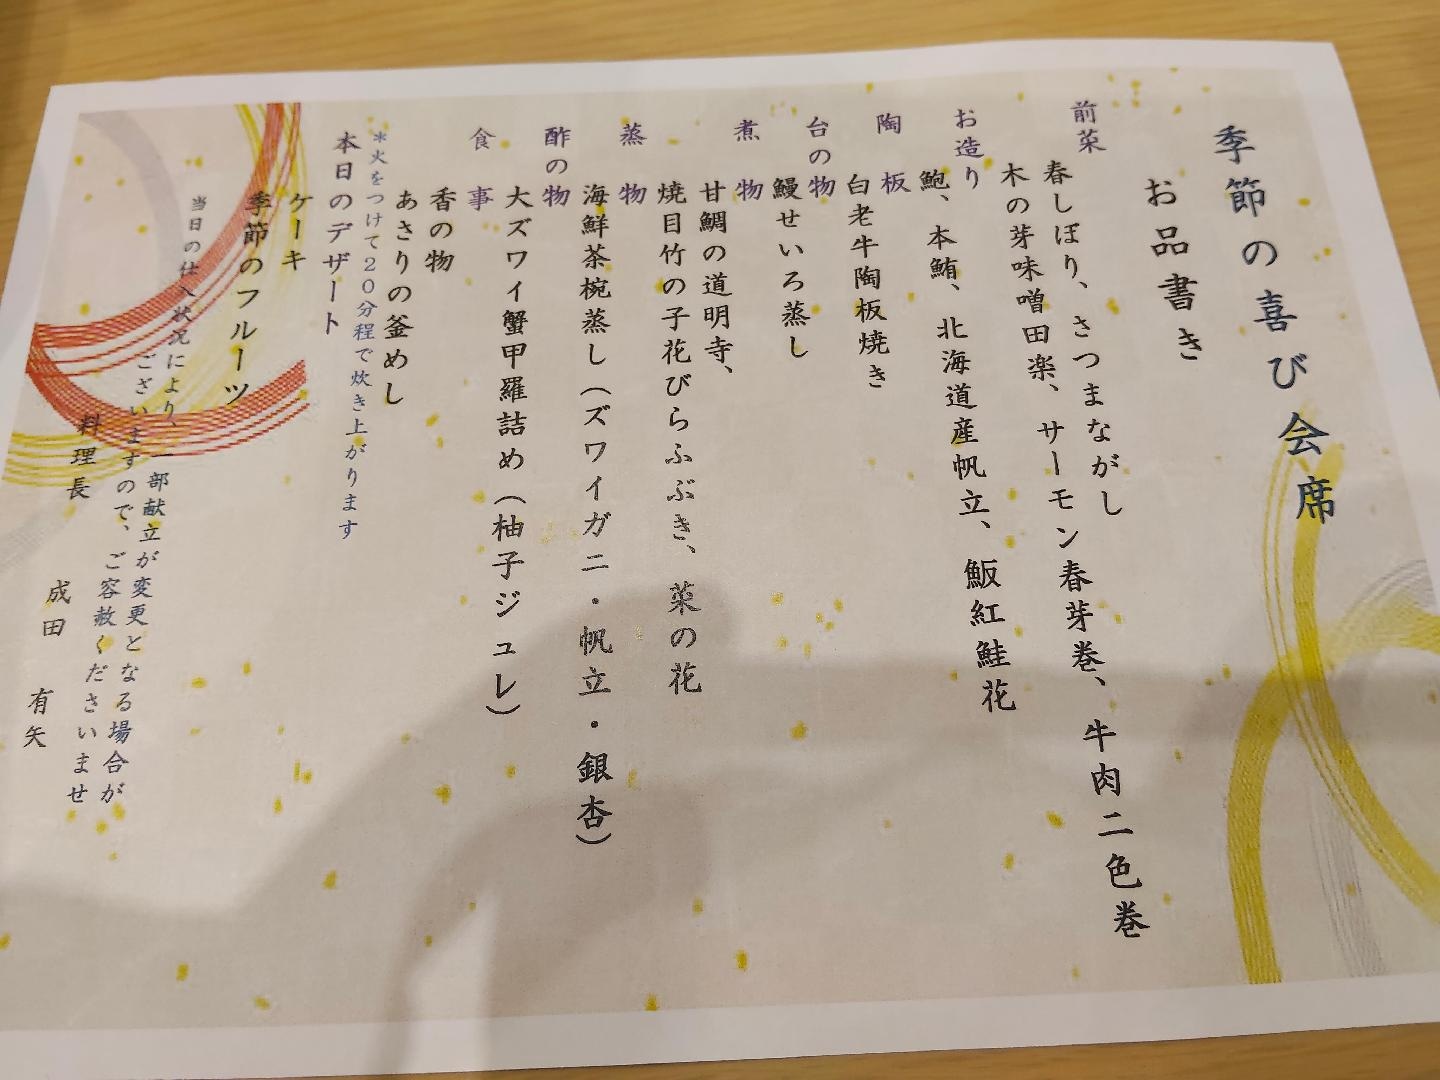 季節の喜び会席
お品書き
前菜
春しぼり、さつまながし
木の芽味噌田楽、サーモン春芽巻、牛肉二色巻
お造り
鮑、本鮪、北海道産帆立、鮃紅鮭花
陶板
白老牛陶板焼き
台の物
鰻せいろ蒸し
煮物
甘鯛の道明寺、
焼目竹の子花びらふぶき、菜の花
蒸物
海鮮茶椀蒸し（ズワイガニ・帆立・銀杏）
酢の物
大ズワイ蟹甲羅詰め（柚子ジュレ）
食事
香の物
あさりの釜めし
＊火をつけて２０分程で炊き上がります
本日のデザート
ケーキ
季節のフルーツ
当日の仕入状況により、一部献立が変更となる場合が
ございますので、ご容赦くださいませ
料理長 成田 有矢